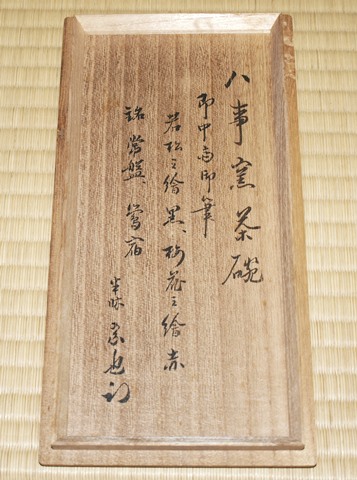 八事窯茶碗
即中斎御筆
若松之繪黒、梅花之繪赤
銘 常盤、鶯宿
半床 宗也